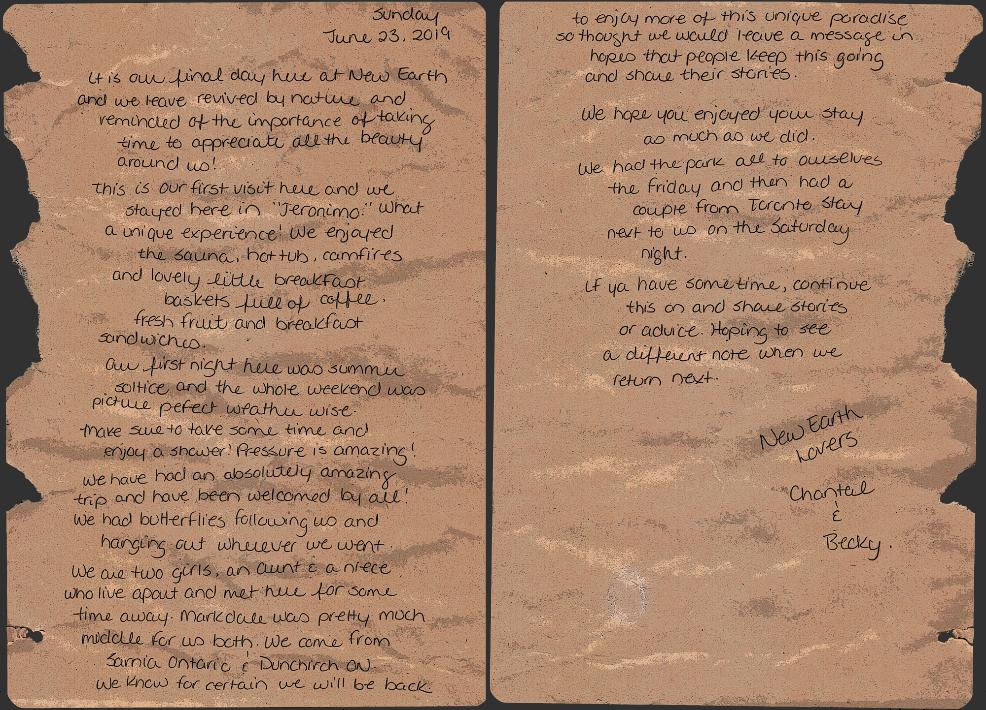 Sunday
June 23, 2019
It is our final day here at New Earth
and we leave revived by nature and
reminded of the importance of taking
time to appreciate all the beauty
around us!
This is our first visit here and we
stayed here in "Jeronimo." What
a unique experience! We enjoyed
the sauna, hot tub, camfires
and lovely little breakfast
baskets full of coffee,
fresh fruit and breakfast
sandwiches.
Our first night here was summer
soltice and the whole weekend was
picture pefect weather wise.
Make sure to take some time and
enjoy a shower! Pressure is amazing!
We have had an absolutely amazing
trip and have been welcomed by all!
We had butterflies following us and
hanging out wherever we went.
We are two girls, an Aunt & a niece
who live apart and met here for some
time away. Markdale was pretty much
middle for us both. We come from
Sarnia Ontario & Dunchurch ON.
We know for certain we will be back
to enjoy more of this unique paradise
so thought we would leave a message in
hopes that people keep this going
and share their stories.
We hope you enjoyed your stay
as much as we did.
We had the park all to ourselves
the Friday and then had a
couple from Toronto stay
next to us on the Saturday
night.
If ya have some time, continue
this on and share stories
or advice. Hoping to see
a different note when we
return next.
New Earth
Lovers
Chantel
&
Becky.